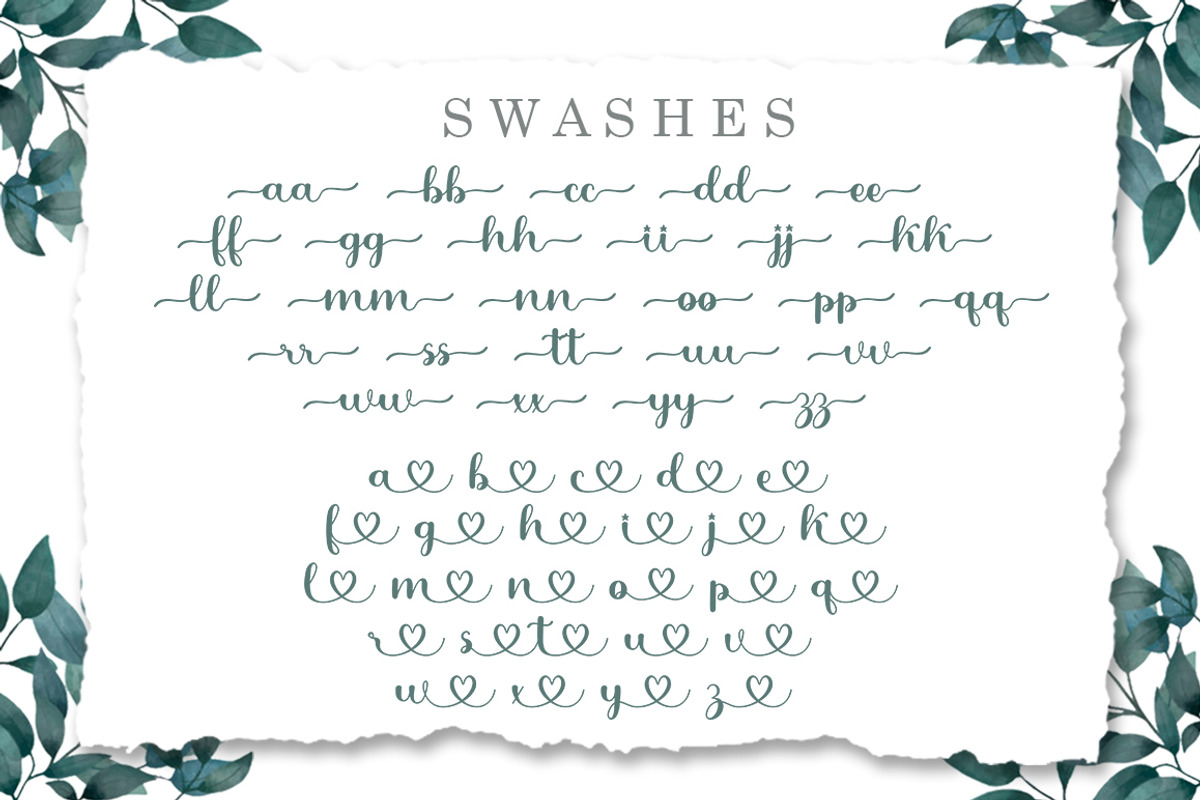 SWASHES
aa bb cc dd ee
ff gg hh ii jj kk
ll mm nn oo pp qq
rr ss tt uu vv
ww xx yy zz
a b c d e
f g h i j k
l m n o p q
r s t u v
w x y z